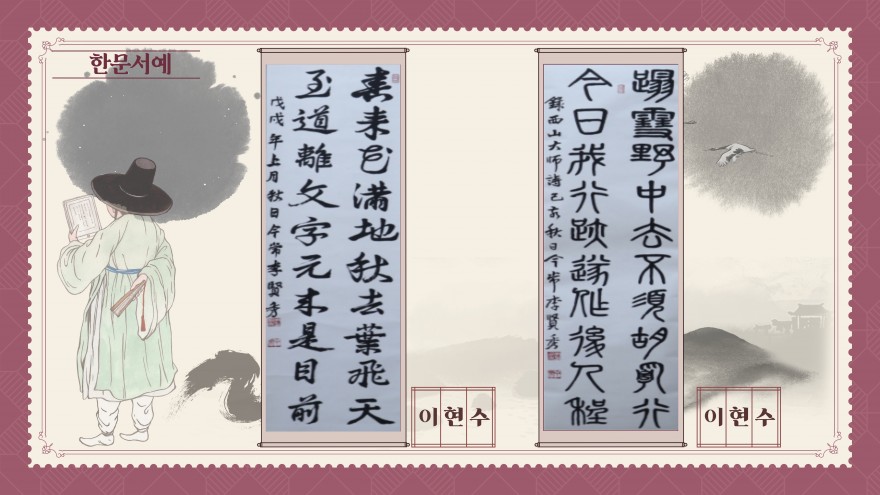 한문서예
春来花満地秋去葉飛天
至道離文字元来是目前
戊戌年上月秋日今常李賢秀
이현수
踏雪野中去不須胡亂行
今日我行跡遂作後人程
錄西山大師詩己亥秋日今常李賢秀
이현수